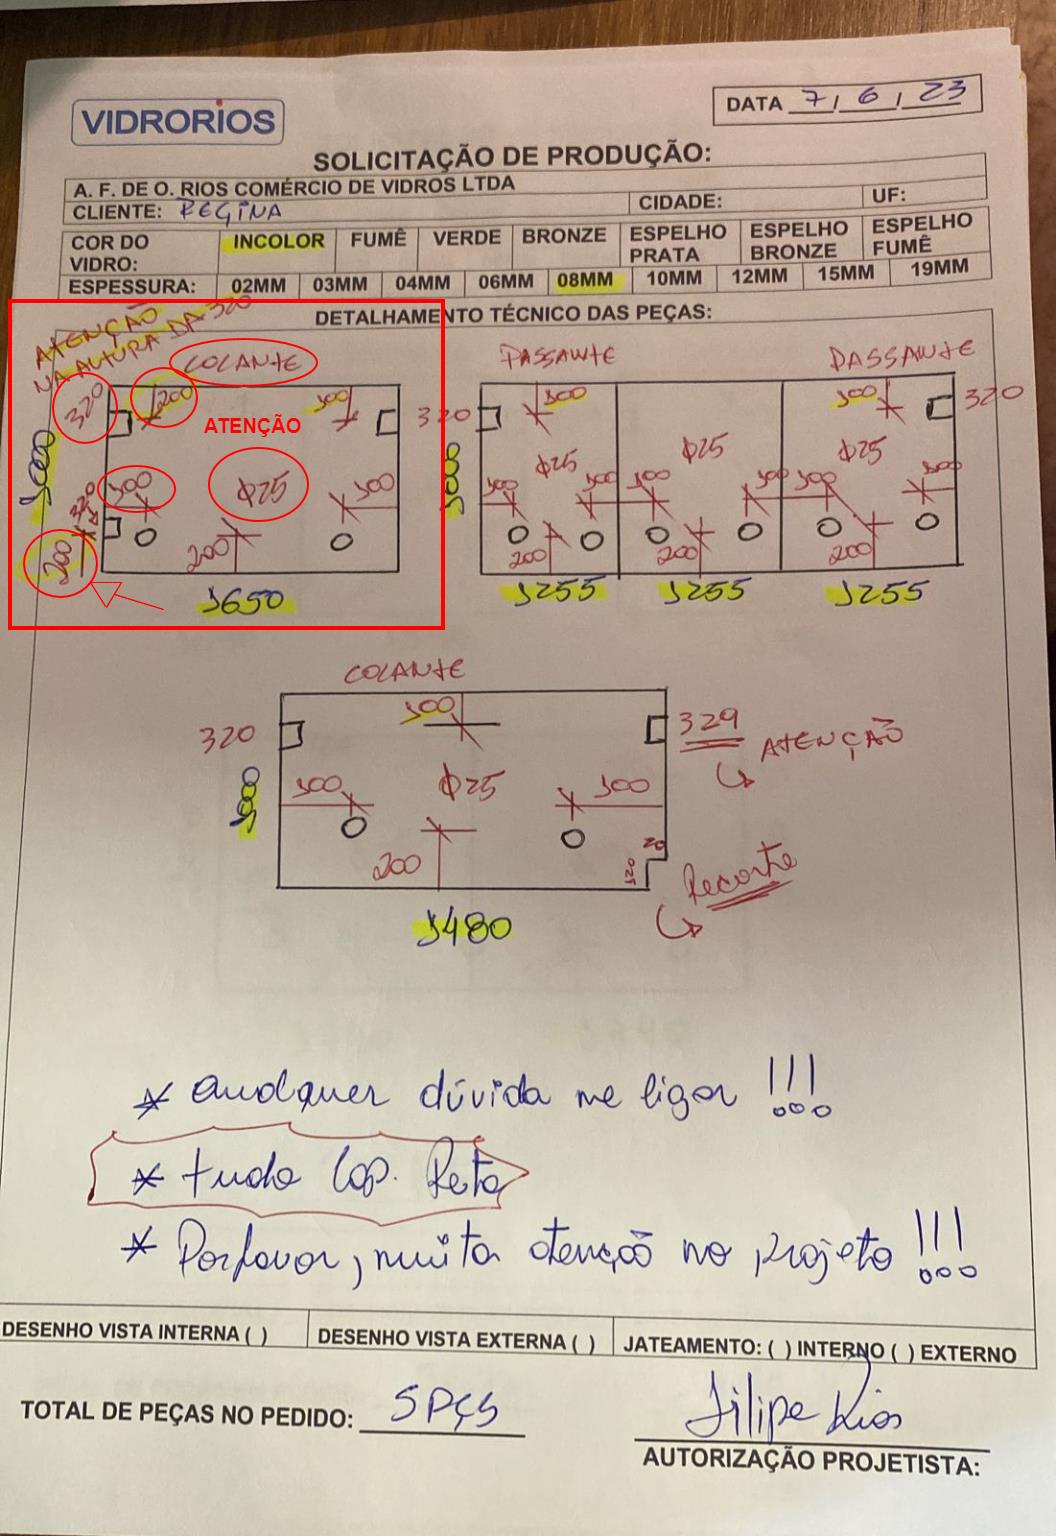 VIDRORIOS
DATA 7 / 6 / 23
SOLICITAÇÃO DE PRODUÇÃO:
A. F. DE O. RIOS COMÉRCIO DE VIDROS LTDA
CLIENTE: REGINA CIDADE: UF:
COR DO VIDRO: INCOLOR FUMÊ VERDE BRONZE ESPELHO PRATA ESPELHO BRONZE ESPELHO FUMÊ
ESPESSURA: 02MM 03MM 04MM 06MM 08MM 10MM 12MM 15MM 19MM
DETALHAMENTO TÉCNICO DAS PEÇAS:
ATENÇÃO
NA ALTURA DA 320
COLANTE
320 200 100
ATENÇÃO
1000
100 Ø25 100
320
200
200
1650
PASSANTE PASSANTE
320 100 100 320
1000
Ø25 Ø25 Ø25
100 100 100 100 100 100
200 200 200
1255 1255 1255
COLANTE
100
320 329
ATENÇÃO
1000
100 Ø25 100
200
20
120
Recorte
1480
* Qualquer dúvida me ligar !!!
* tudo Lap. Reta
* Por favor, muita atenção no projeto !!!
DESENHO VISTA INTERNA ( ) DESENHO VISTA EXTERNA ( ) JATEAMENTO: ( ) INTERNO ( ) EXTERNO
TOTAL DE PEÇAS NO PEDIDO: 5 PÇS
Filipe Rios
AUTORIZAÇÃO PROJETISTA: